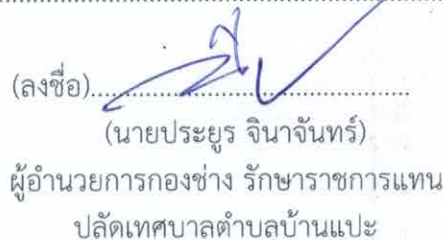 (ลงชื่อ)
(นายประยูร จินาจันทร์)
ผู้อำนวยการกองช่าง รักษาราชการแทน
ปลัดเทศบาลตำบลบ้านแปะ